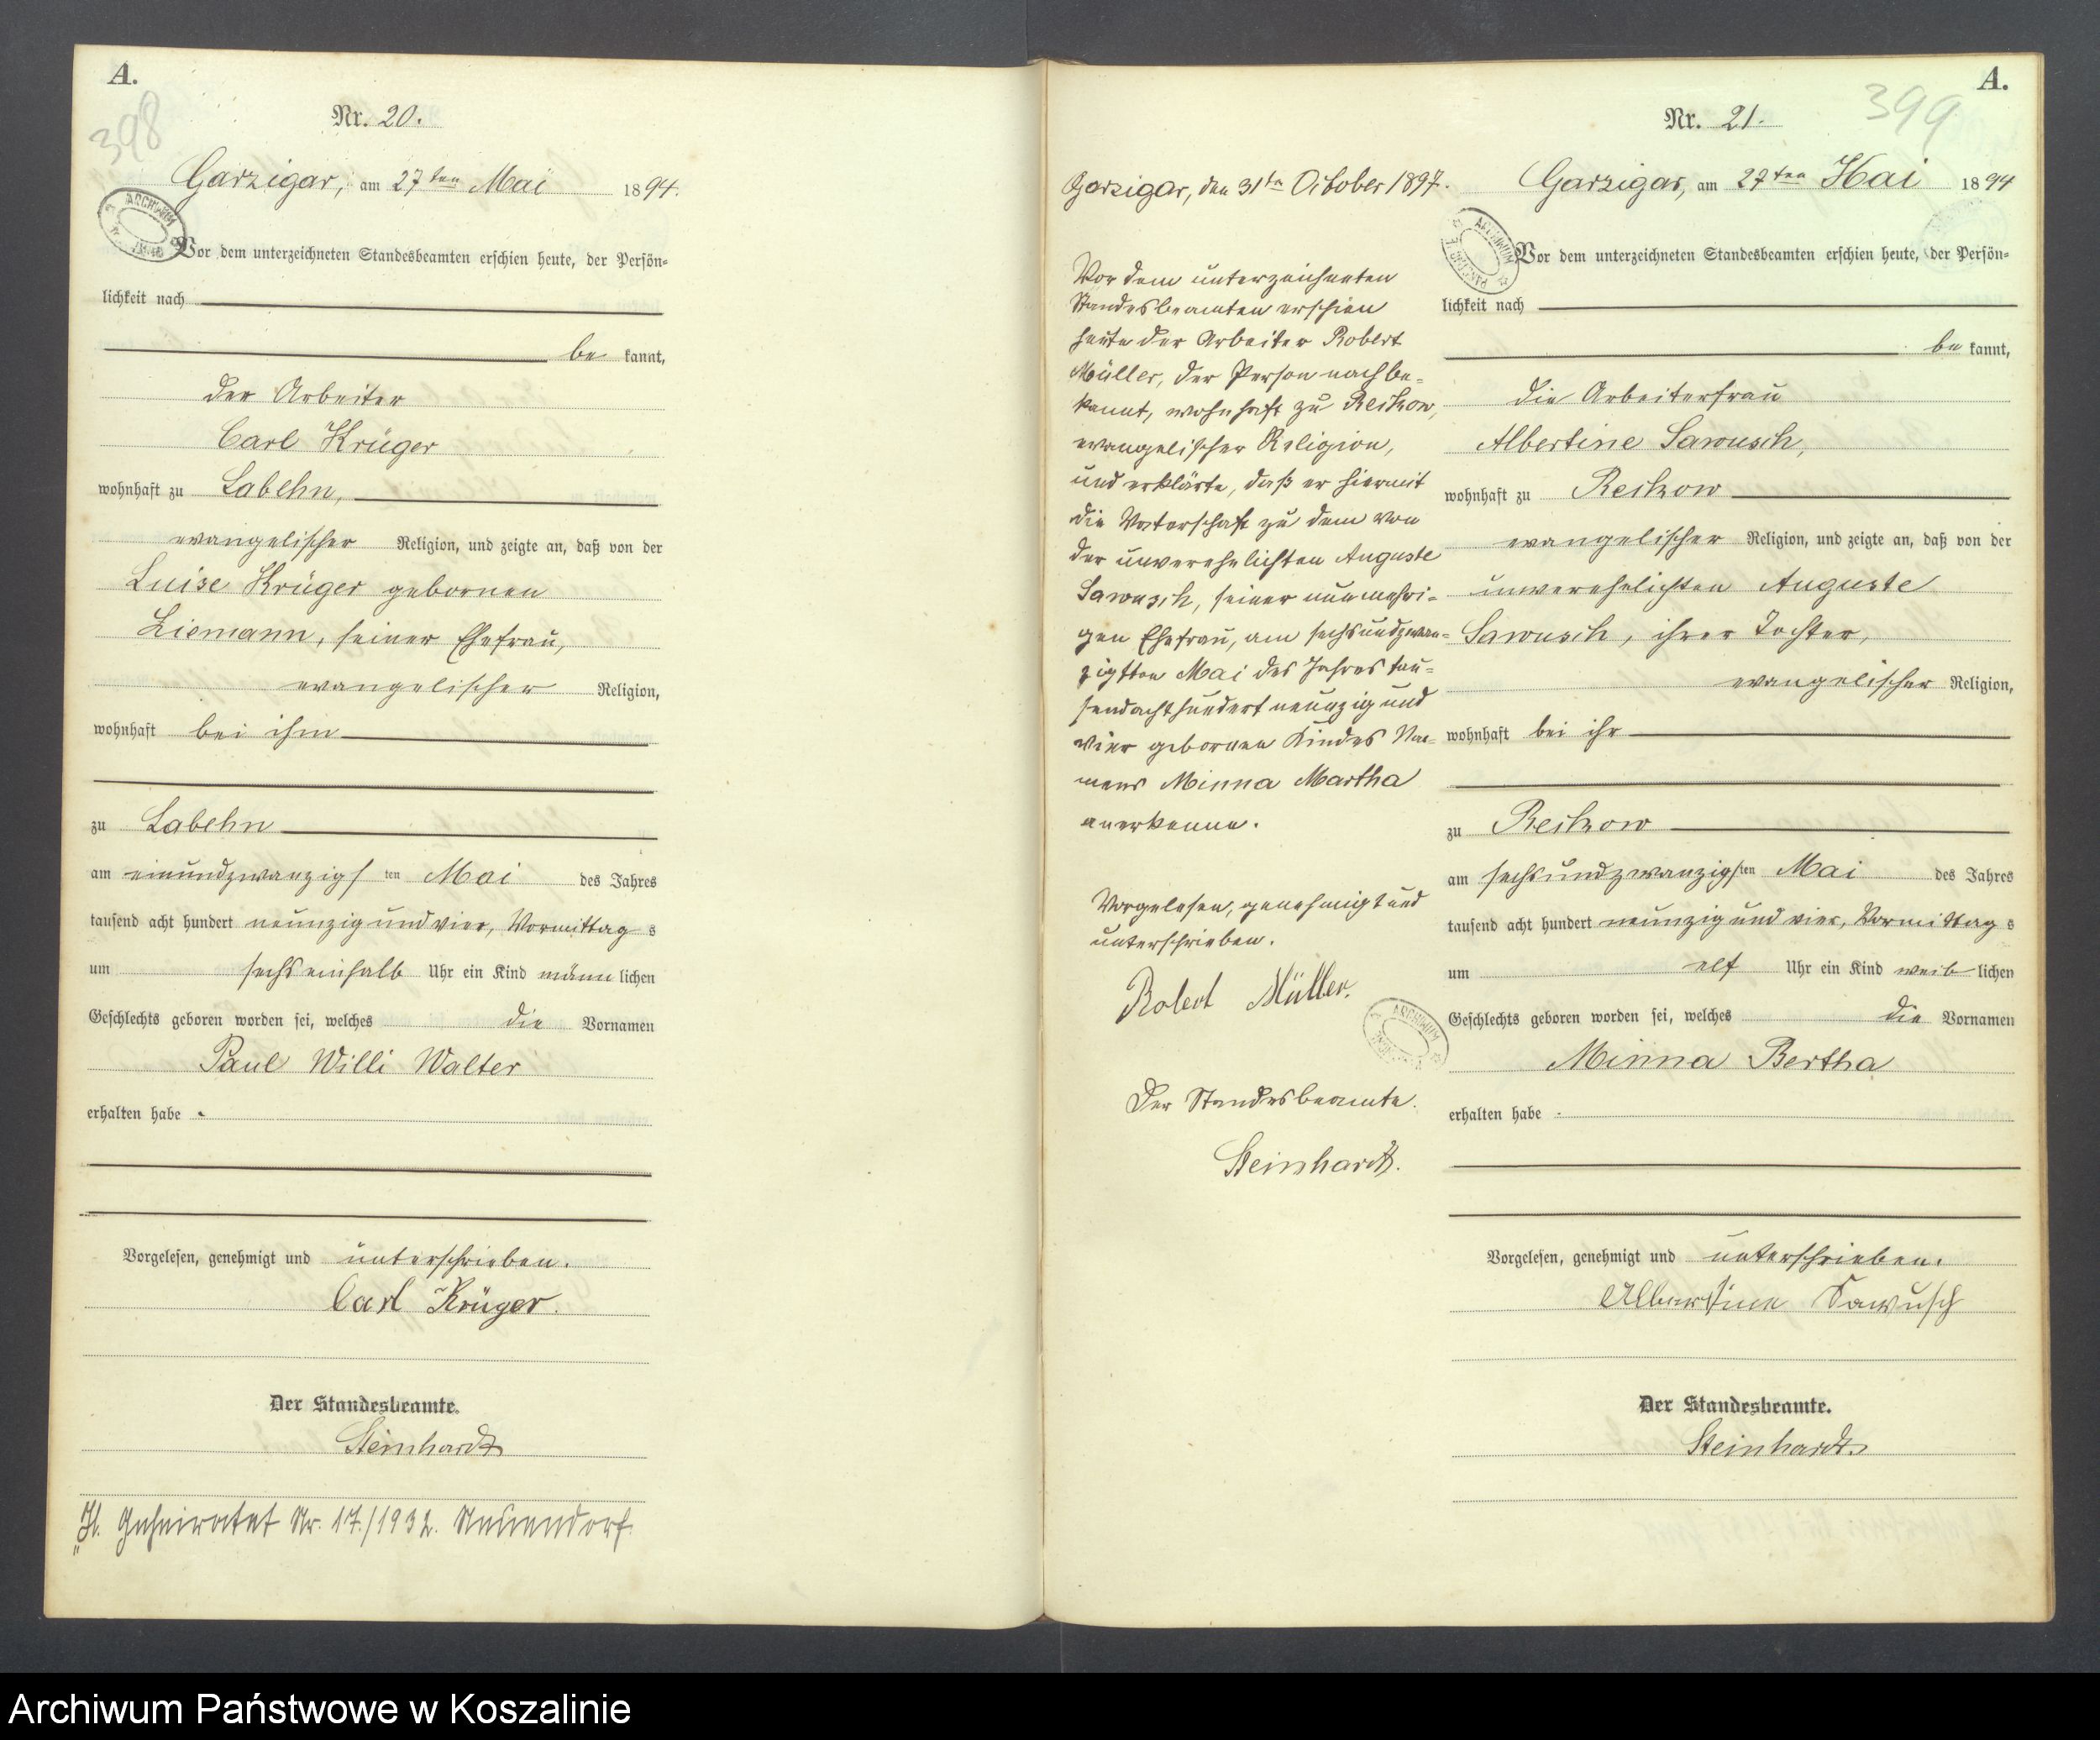 A.
398
Nr. 20.
Garzigar, am 27ten Mai 1894.
Vor dem unterzeichneten Standesbeamten erschien heute, der Persön=
lichkeit nach
be kannt,
der Arbeiter
Carl Krüger
wohnhaft zu Labehn,
evangelischer Religion, und zeigte an, daß von der
Luise Krüger gebornen
Liemann, seiner Ehefrau,
evangelischer Religion,
wohnhaft bei ihm
zu Labehn
am einundzwanzigsten Mai des Jahres
tausend acht hundert neunzig und vier, Vormittags
um sechseinhalb Uhr ein Kind männlichen
Geschlechts geboren worden sei, welches die Vornamen
Paul Willi Walter
erhalten habe.
Vorgelesen, genehmigt und unterschrieben.
Carl Krüger.
Der Standesbeamte.
Steinhardt
Geheiratet Nr. 17./1932. Neuendorf.
Garzigar, den 31ten October 1897.
Vor dem unterzeichneten
Standesbeamten erschien
heute der Arbeiter Robert
Müller, der Person nach be=
kannt, wohnhaft zu Reckow,
evangelischer Religion,
und erklärte, daß er hiermit
die Vaterschaft zu dem von
der unverehelichten Auguste
Sawusch, seiner nunmehri=
gen Ehefrau, am sechsundzwan=
zigsten Mai des Jahres tau=
sendachthundert neunzig und
vier gebornen Kindes Na=
mens Minna Martha
anerkenne.
Vorgelesen, genehmigt und
unterschrieben.
Robert Müller.
Der Standesbeamte.
Steinhardt.
A.
399
Nr. 21.
Garzigar, am 27ten Mai 1894
Vor dem unterzeichneten Standesbeamten erschien heute, der Persön=
lichkeit nach
be kannt,
die Arbeiterfrau
Albertine Sawusch,
wohnhaft zu Reckow
evangelischer Religion, und zeigte an, daß von der
unverehelichten Auguste
Sawusch, ihrer Tochter,
evangelischer Religion,
wohnhaft bei ihr
zu Reckow
am sechsundzwanzigsten Mai des Jahres
tausend acht hundert neunzig und vier, Vormittags
um elf Uhr ein Kind weiblichen
Geschlechts geboren worden sei, welches die Vornamen
Minna Bertha
erhalten habe.
Vorgelesen, genehmigt und unterschrieben.
Albertine Sawusch
Der Standesbeamte.
Steinhardt.
Archiwum Państwowe w Koszalinie